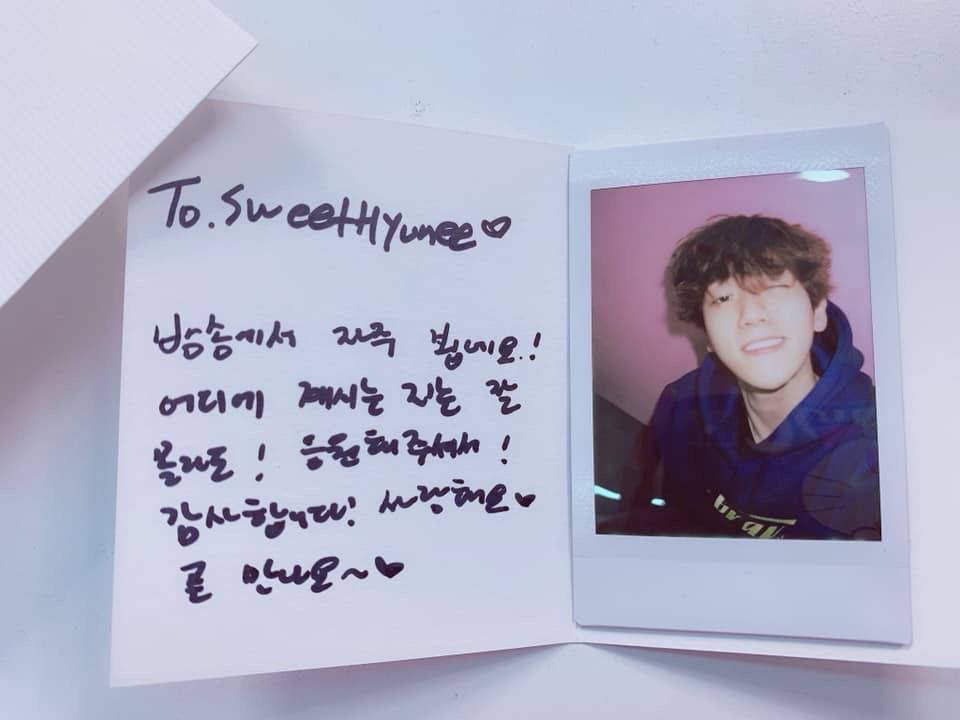 To. SweetHyunee♡
방송에서 자주 봅네요!
어디에 계시는 지는 잘
몰라도! 응원해주셔서!
감사합니다! 사랑해요♡
곧 만나요~♡